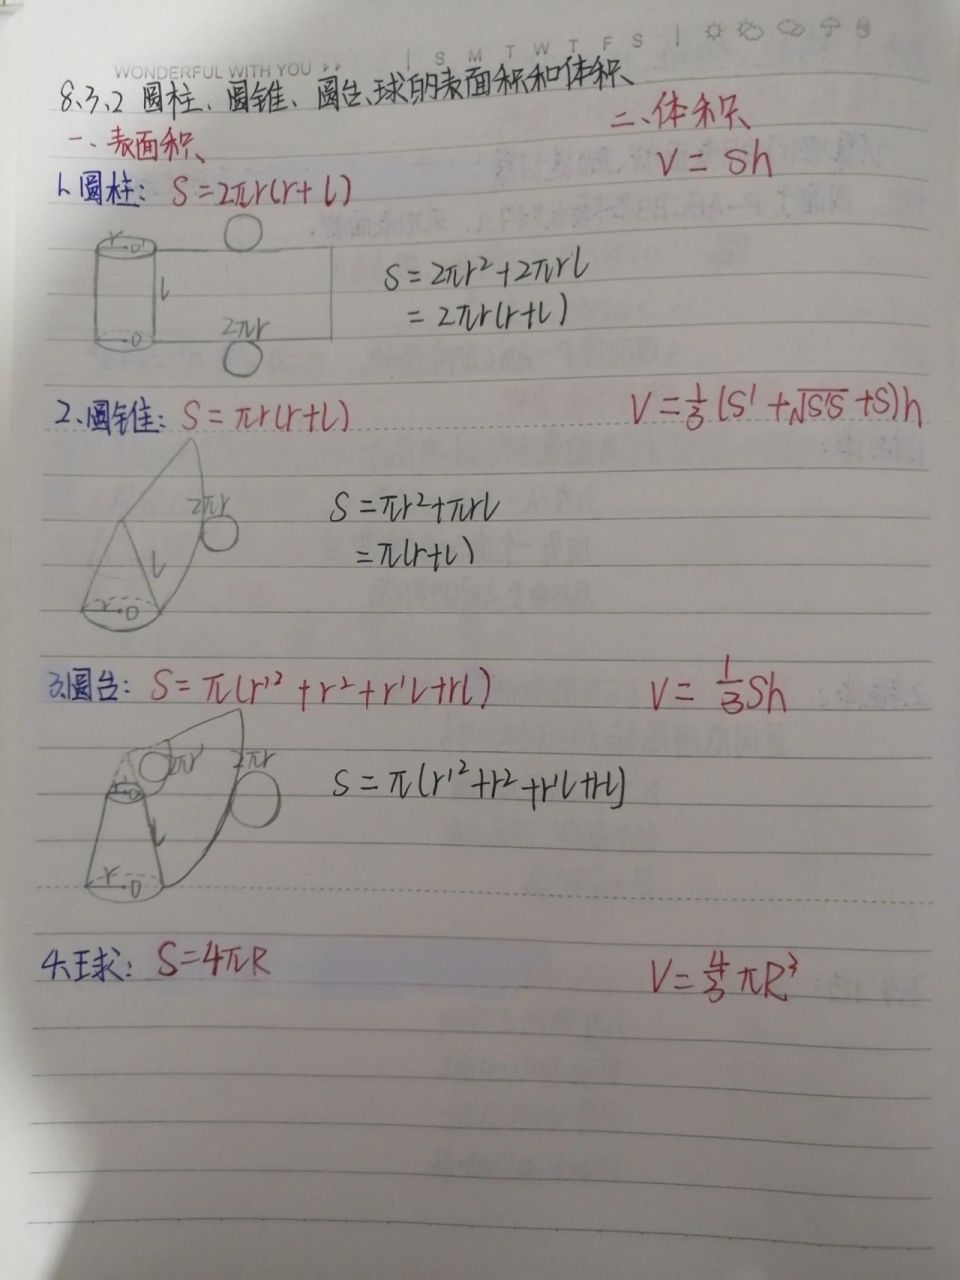 WONDERFUL WITH YOU | S M T W T F S |
8.3.2 圆柱、圆锥、圆台、球的表面积和体积
一、表面积
二、体积
1.圆柱: S=2πr(r+l)
V=Sh
r O'
l
O
2πr
S=2πr²+2πrl
=2πr(r+l)
2.圆锥: S=πr(r+l)
V=1/3(S'+√S'S+S)h
2πr
l
r O
S=πr²+πrl
=π(r+l)
3.圆台: S=π(r'²+r²+r'l+rl)
V=1/3Sh
2πr'
2πr
l
r O
S=π(r'²+r²+r'l+rl)
4.球: S=4πR
V=4/3πR³